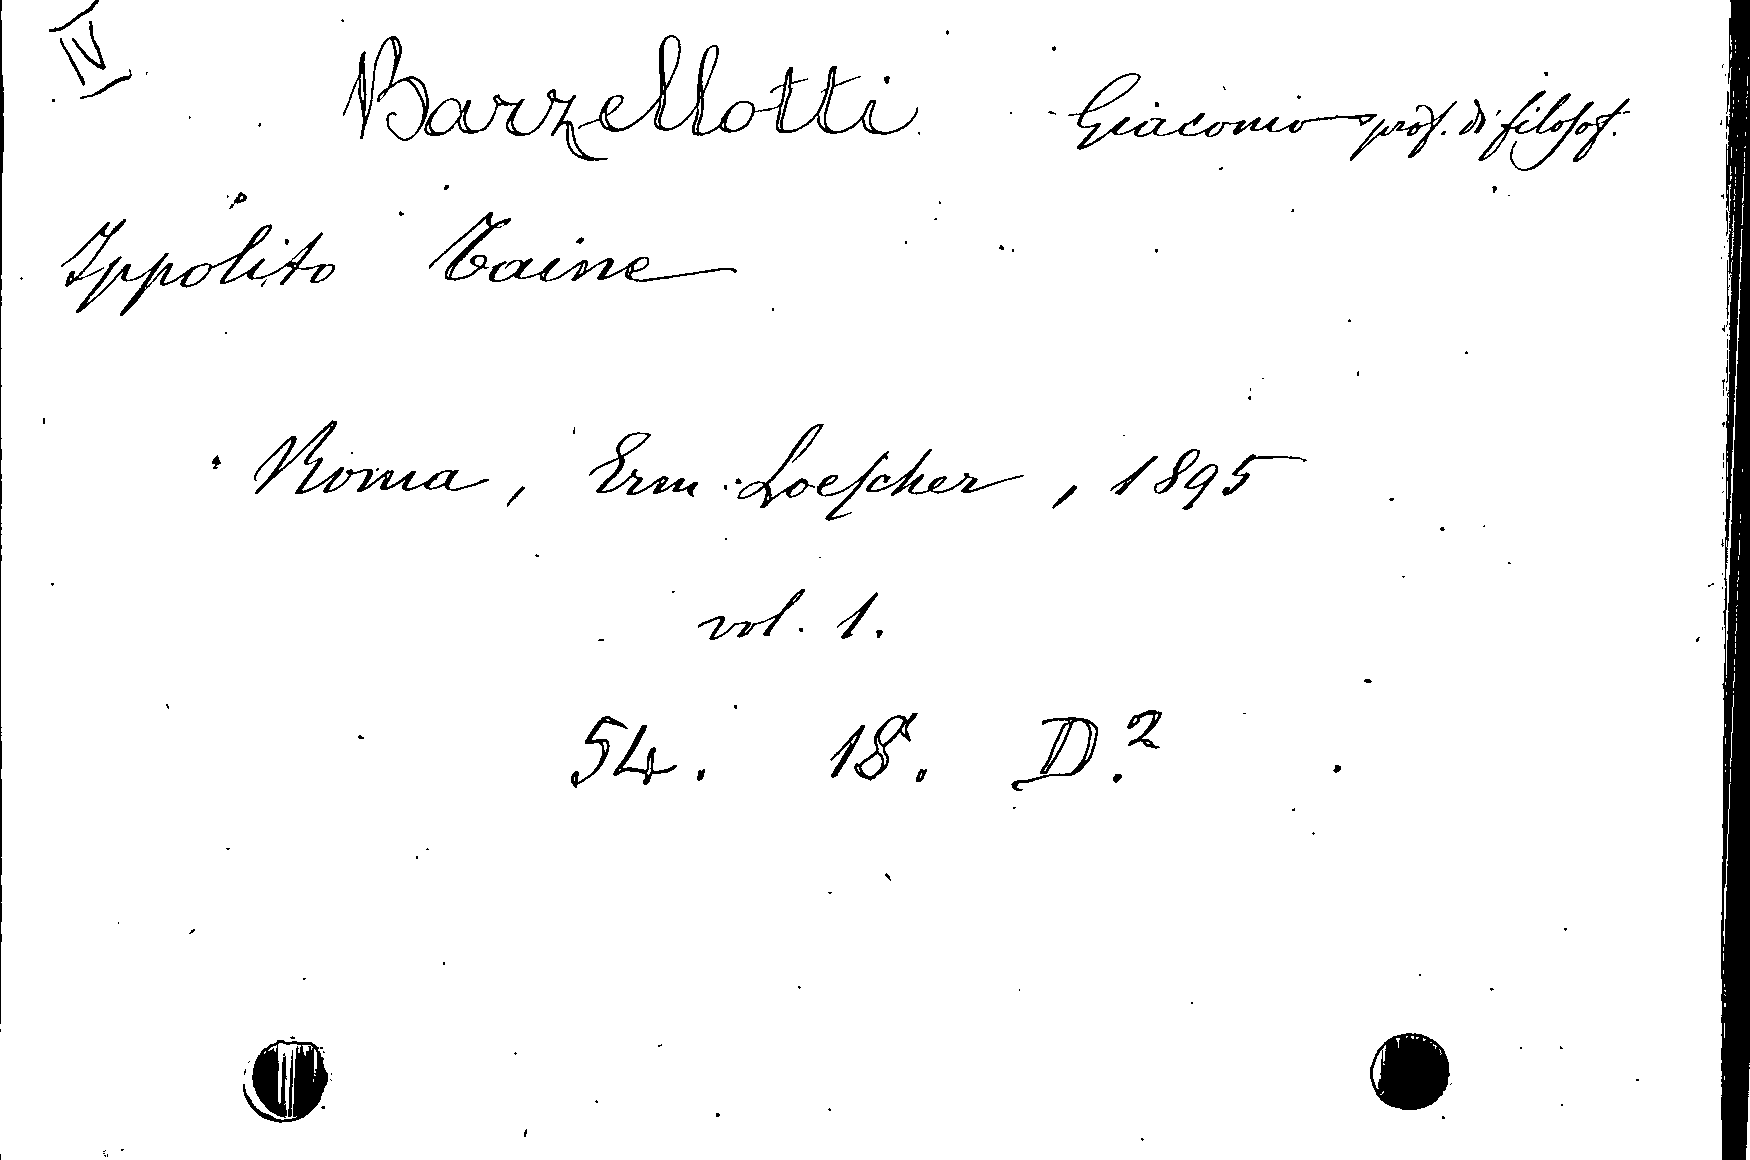 IV
Barzellotti Giacomo prof. di filosof.
Ippolito Taine
Roma, Erm. Loescher, 1895
vol. 1.
54. 18. D.²